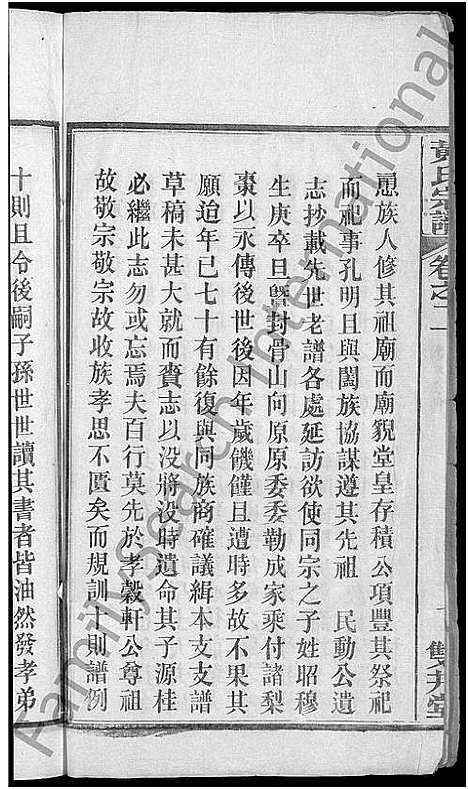 黃氏宗譜
卷之二
一
雙井堂
愿族人修其祖廟而廟貌堂皇存積公項豐其祭祀
而祀事孔明且與闔族協謀遵其先祖 民動公遺
志抄載先世老譜各處延訪欲使同宗之子姓昭穆
生庚卒旦暨封骨山向原原委委勒成家乘付諸梨
棗以永傳後世後因年歲饑僅且遭時多故不果其
願迨年已七十有餘復與同族商確議緝本支支譜
草稿未甚大就而賫志以没將没時遺命其子源桂
必繼此志勿或忘焉夫百行莫先於孝榖軒公尊祖
故敬宗敬宗故收族孝思不匱矣而規訓十則譜例
十則且令後嗣子孫世世讀其書者皆油然發孝弟
FamilySearch International